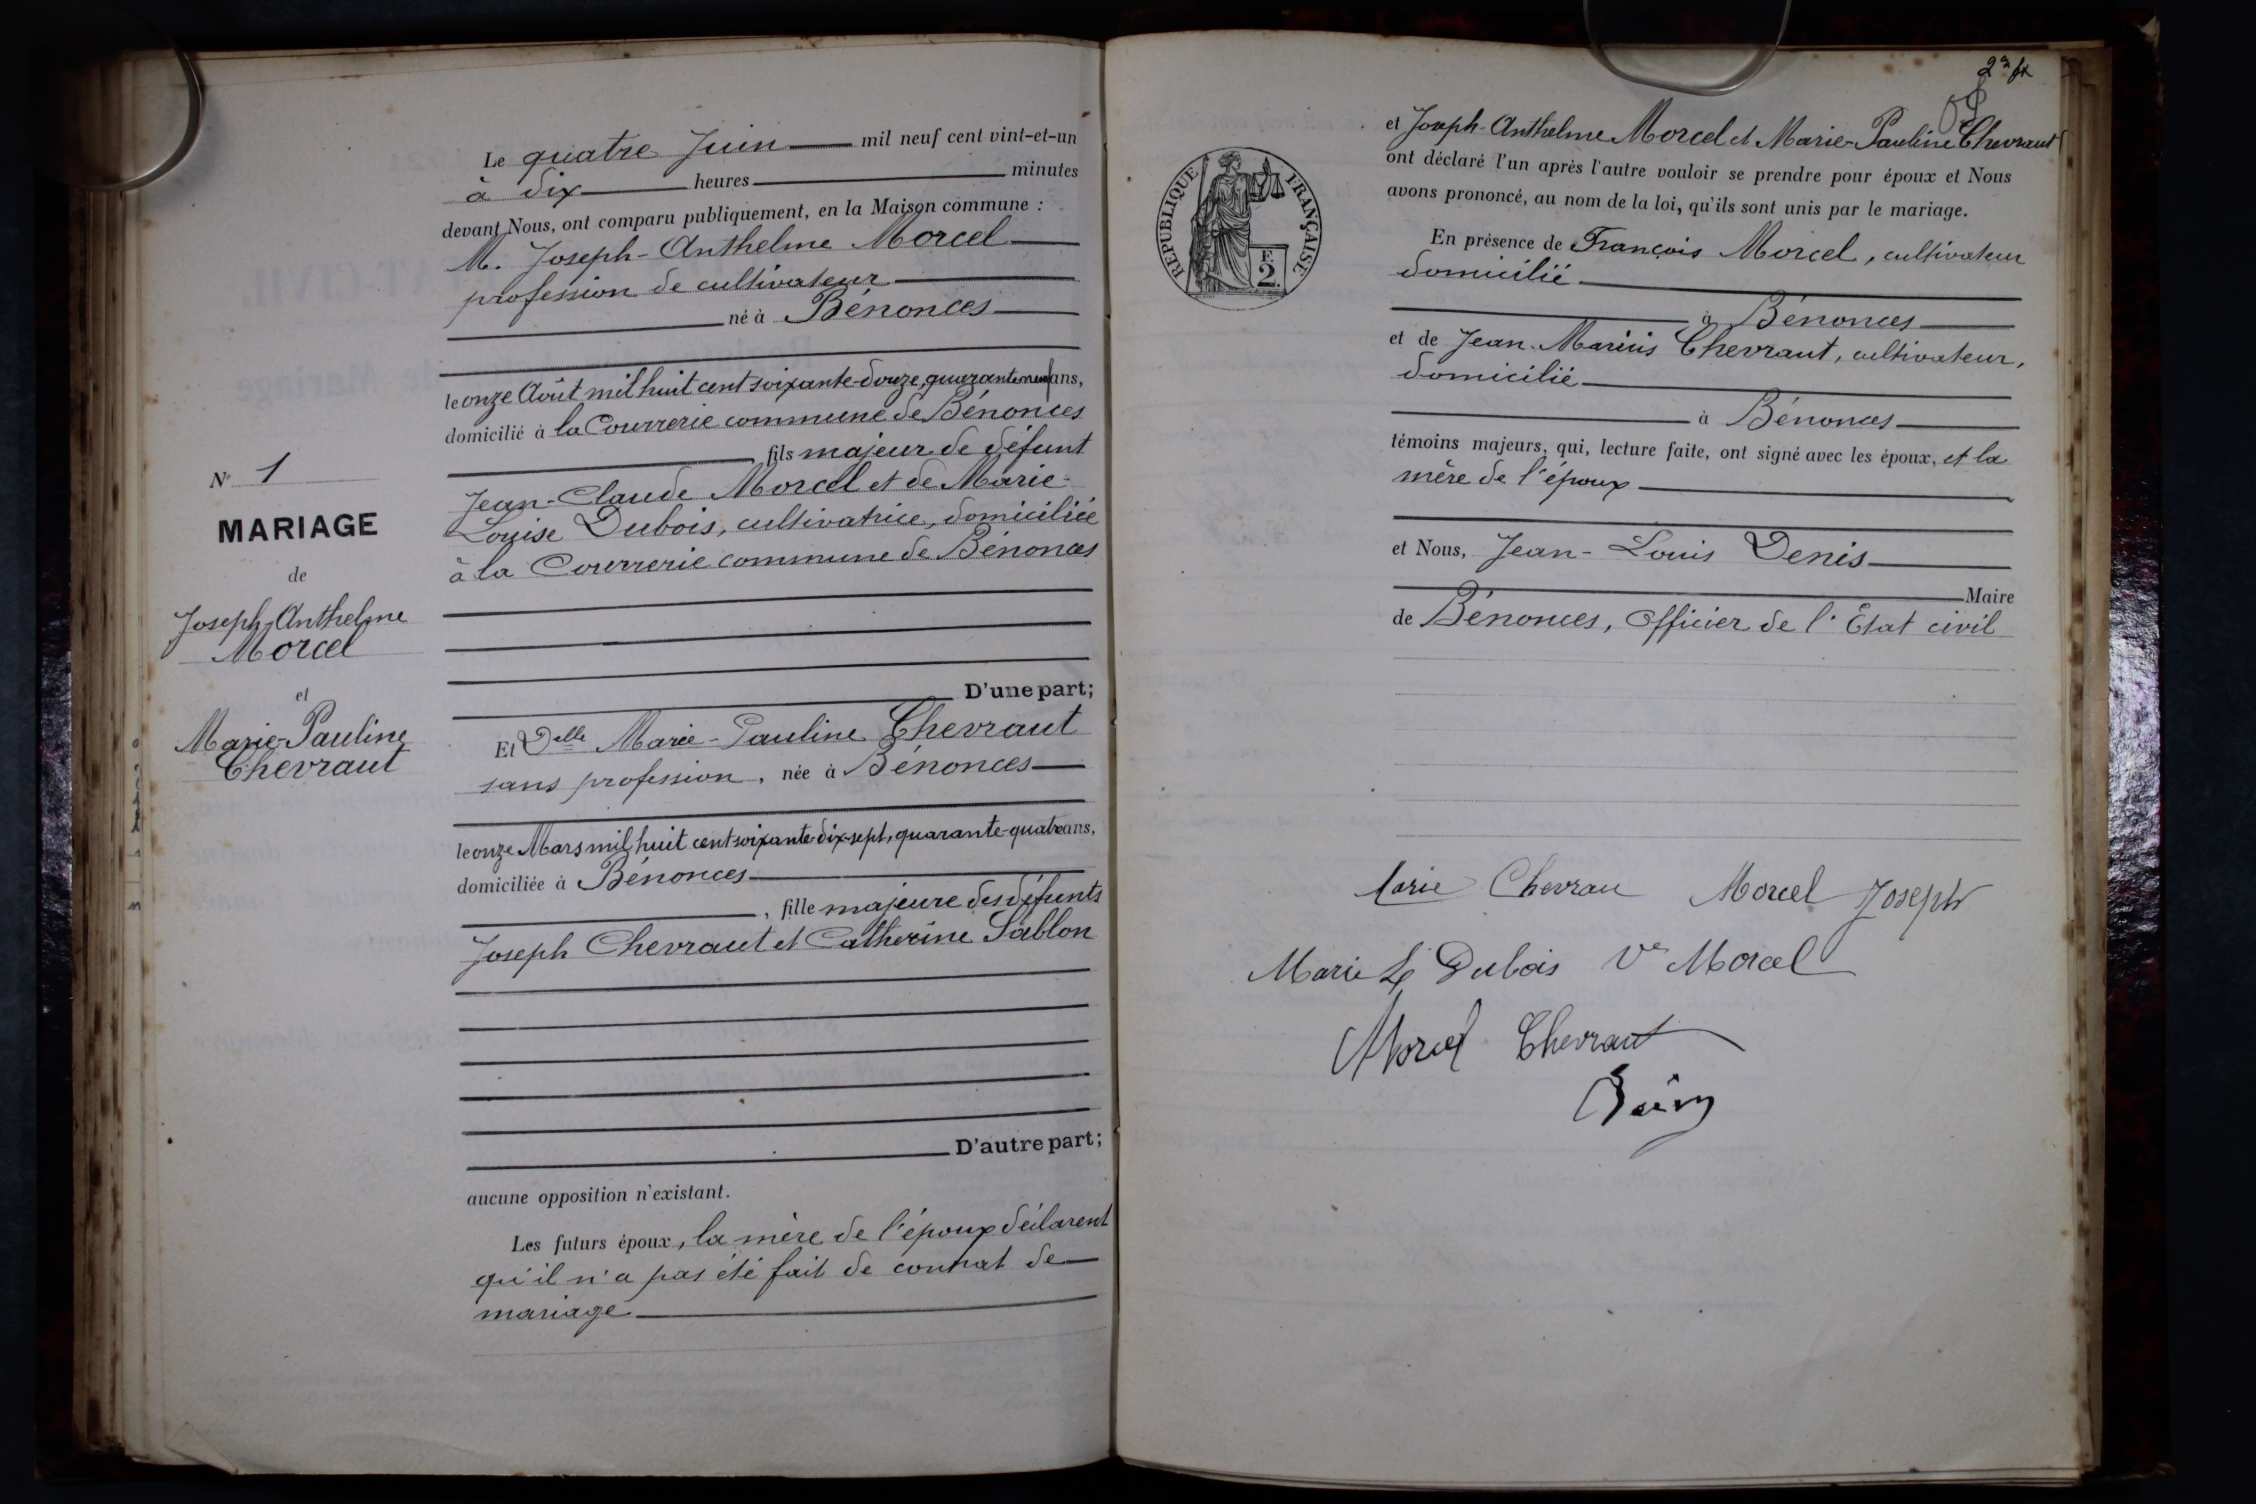 Le quatre Juin mil neuf cent vint-et-un
à dix heures minutes
devant Nous, ont comparu publiquement, en la Maison commune :
M. Joseph-Anthelme Morcel
profession de cultivateur
né à Bénonces
le onze Août mil huit cent soixante-douze, quarante neuf ans,
domicilié à la Courrerie commune de Bénonces
fils majeur de défunt
Jean-Claude Morcel et de Marie-
Louise Dubois, cultivatrice, domiciliée
à la Courrerie commune de Bénonces
D'une part;
Et Delle Marie-Pauline Chevraut
sans profession, née à Bénonces
le onze Mars mil huit cent soixante-dix-sept, quarante-quatre ans,
domiciliée à Bénonces
, fille majeure des défunts
Joseph Chevraut et Catherine Sablon
D'autre part;
aucune opposition n'existant.
Les futurs époux, la mère de l'époux déclarent
qu'il n'a pas été fait de contrat de
mariage
N° 1
MARIAGE
de
Joseph-Anthelme
Morcel
et
Marie-Pauline
Chevraut
et Joseph-Anthelme Morcel et Marie-Pauline Chevraut
ont déclaré l'un après l'autre vouloir se prendre pour époux et Nous
avons prononcé, au nom de la loi, qu'ils sont unis par le mariage.
En présence de François Morcel, cultivateur
domicilié
à Bénonces
et de Jean Marius Chevraut, cultivateur,
domicilié
à Bénonces
témoins majeurs, qui, lecture faite, ont signé avec les époux, et la
mère de l'époux
et Nous, Jean-Louis Denis
Maire
de Bénonces, Officier de l'Etat civil
RÉPUBLIQUE FRANÇAISE
F.
2.
Marie Chevrau Morcel Joseph
Marie L Dubois Ve Morcel
Morcel Chevraut
Denis